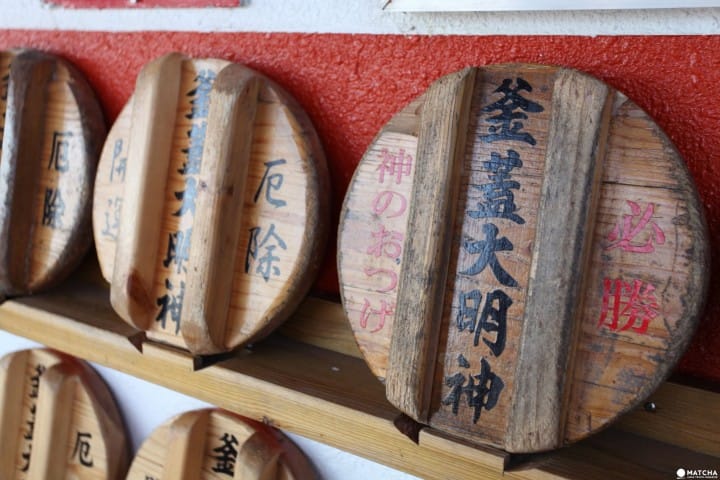 必勝
釜蓋大明神
神のおつげ
厄除
釜蓋大明神
開運
厄除
釜
厄
MATCHA